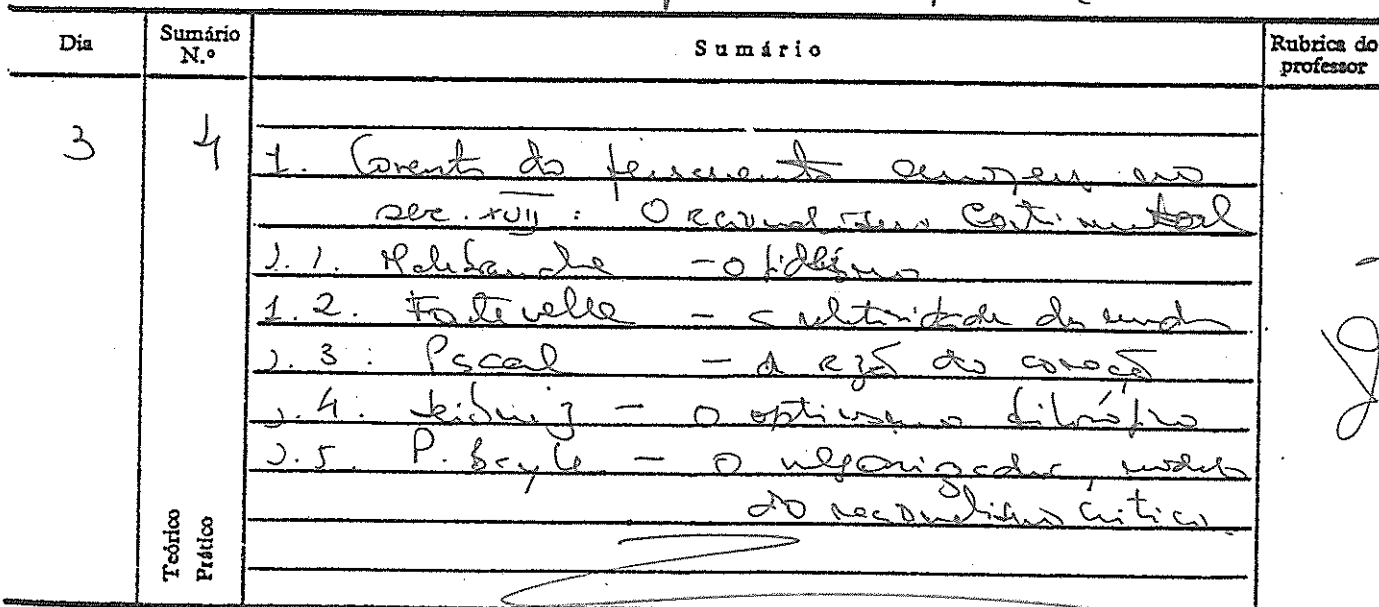 Dia
Sumário N.º
Sumário
Rubrica do professor
3
4
1. Corrente do pensamento europeu no
sec. XVII: O racionalismo Continental
1.1. Malebranche - o fideísmo
1.2. Fontenelle - a relatividade do mundo
1.3: Pascal - A razão do coração
1.4. Leibniz - o optimismo filosófico
1.5. P. Bayle - o vulgarizador, modelo
do racionalismo crítico.
Teórico
Prático